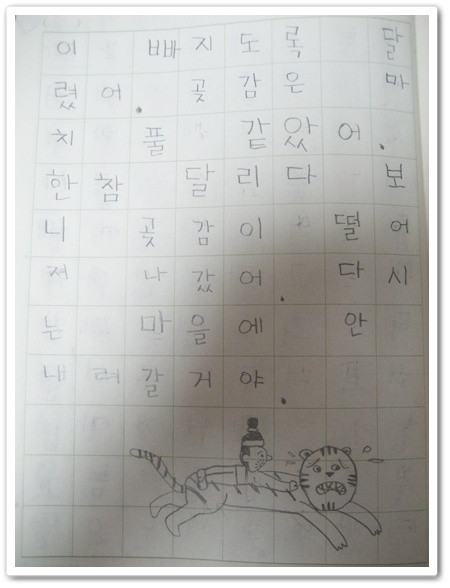 이 빠지도록 달
렸어. 곶감은 마
치 풀 같았어.
한참 달리다 보
니 곶감이 떨어
져 나갔어. 다시
는 마을에 안
내려갈거야.